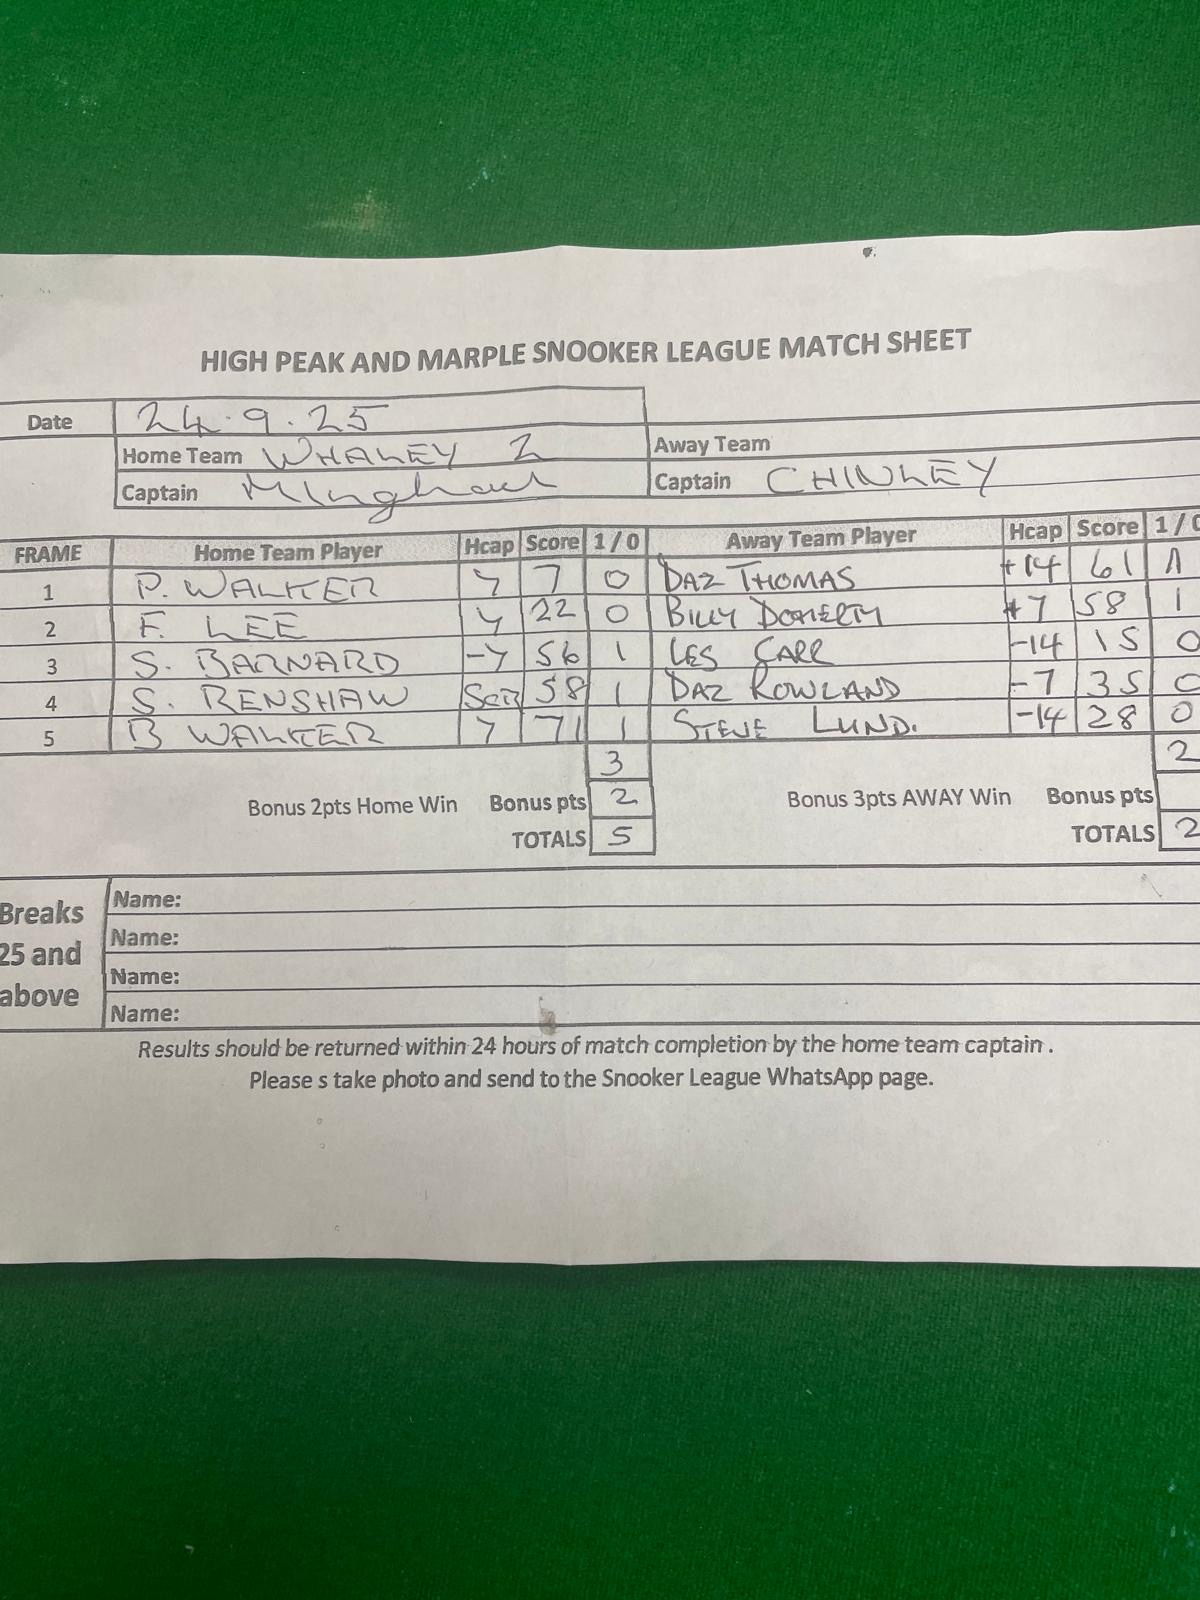 HIGH PEAK AND MARPLE SNOOKER LEAGUE MATCH SHEET
Date 24.9.25
Home Team WHALEY 2 Away Team
Captain Captain CHINLEY
FRAME Home Team Player Hcap Score 1 / 0 Away Team Player Hcap Score 1 / 0
1 P. WALKER 7 7 0 DAZ THOMAS +14 61 1
2 F. LEE 7 22 0 BILLY DOHERTY +7 58 1
3 S. BARNARD -7 56 1 LES CARR -14 15 0
4 S. RENSHAW SCR 58 1 DAZ ROWLAND -7 35 0
5 B WALKER 7 71 1 STEVE LUND. -14 28 0
3 2
Bonus 2pts Home Win Bonus pts 2 Bonus 3pts AWAY Win Bonus pts
TOTALS 5 TOTALS 2
Breaks 25 and above
Name:
Name:
Name:
Name:
Results should be returned within 24 hours of match completion by the home team captain .
Please s take photo and send to the Snooker League WhatsApp page.